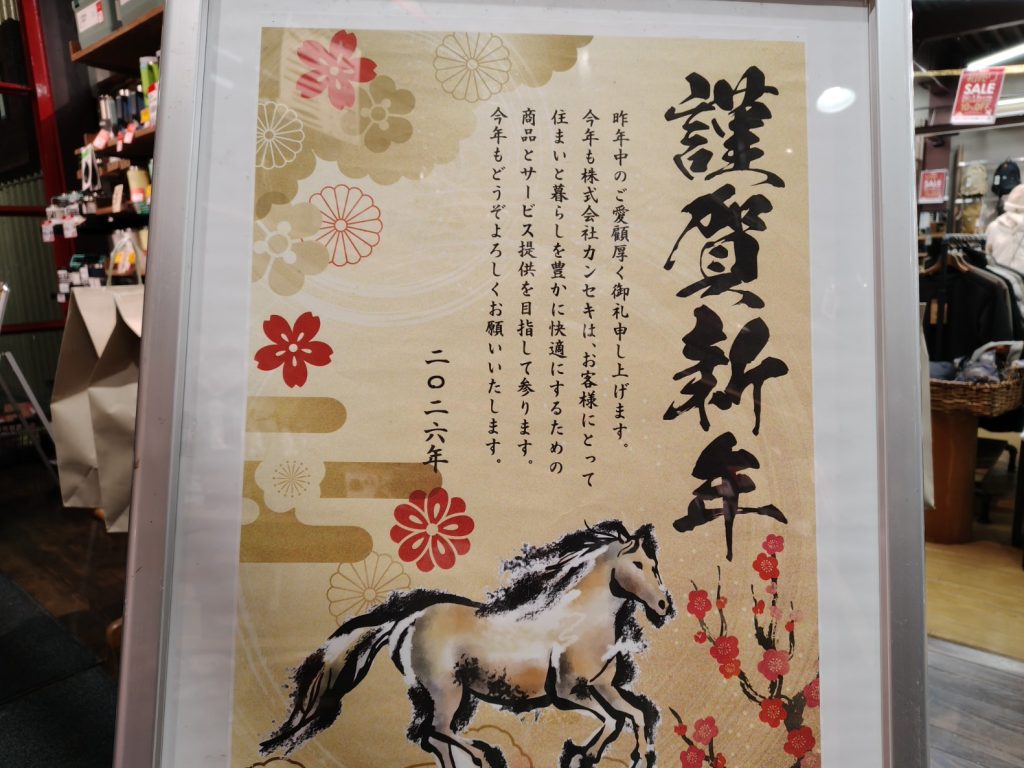 謹賀新年
昨年中のご愛顧厚く御礼申し上げます。
今年も株式会社カンセキは、お客様にとって
住まいと暮らしを豊かに快適にするための
商品とサービス提供を目指して参ります。
今年もどうぞよろしくお願いいたします。
二〇二六年
SALE
SALE